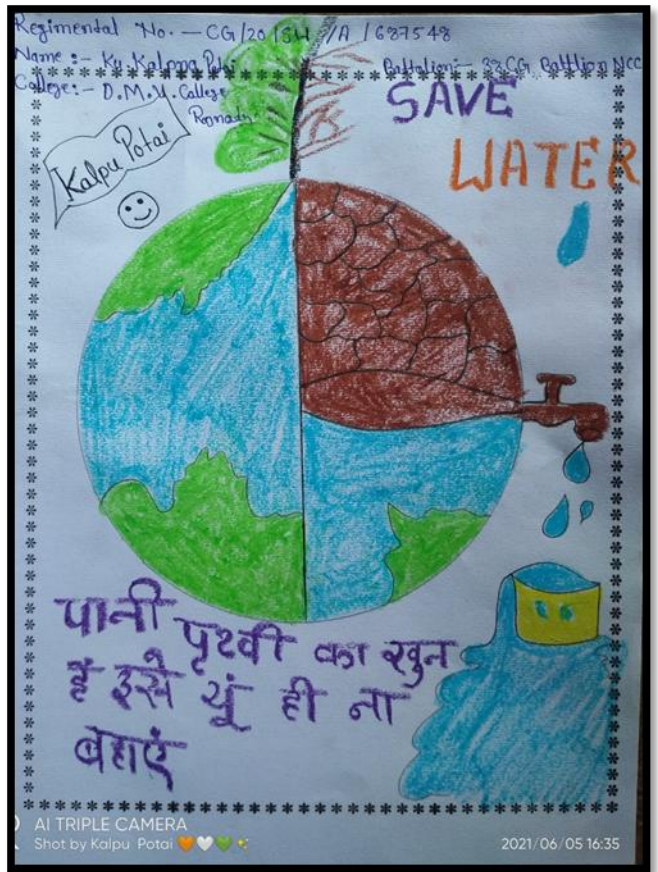 Regimental No. — CG/20/SW/A/687548
Name :- Ku. Kalpna Potai
Battalion:- CG Battlion NCC
College:- D.M.Y. College
Kalpu Potai
SAVE
WATER
पानी पृथ्वी का खुन
है इसे यूं ही ना
बहाएं
AI TRIPLE CAMERA
Shot by Kalpu Potai 🧡🤍💚✨
2021/06/05 16:35